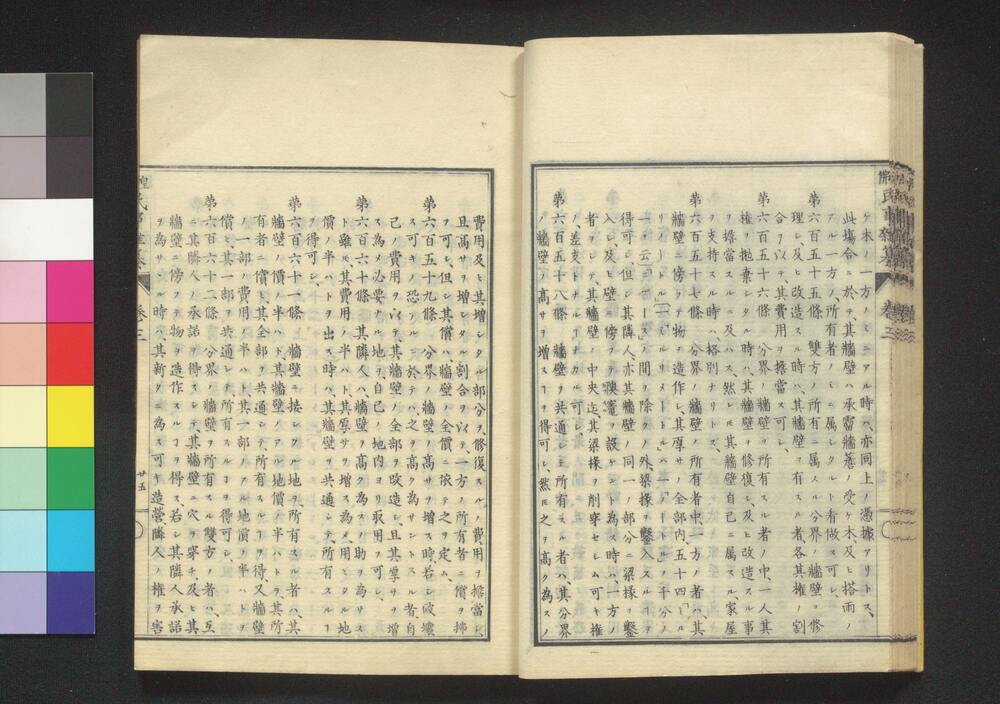 ケ木ノ一方ノミニアル時ハ、亦同上ノ憑據アリトス、
此塲合ニ於テ、其牆壁ハ承霤牆簷ノ受ケ木、及ヒ搭雨ノ
アル一方ノ、所有者ノミニ属シタルト看做ス可シ、
第六百五十五條 雙方ノ所有ニ属スル分界ノ牆壁ヲ修
理シ、及ヒ改造スル時ハ、其牆壁ヲ有スル者、各其権ノ割
合ヲ以テ、其費用ヲ擔當ス可シ、
第六百五十六條 分界ノ牆壁ヲ所有スル者ノ中、一人其
権ヲ抛棄シタル時ハ、其牆壁ヲ修復シ、及ヒ改造スル事
ヲ擔當スルニ及ハス、然レ𪜈其牆壁自己ニ属スル、家屋
ノ支持スル時ハ、格別ナリトス、
第六百五十七條 分界ノ牆壁ノ所有者中、一方ノ者ハ、其
牆壁ニ傍フテ物ヲ造作シ、其厚サノ全部内五十四「ミル
リメートル」(一「ミルリメートル」ハ一「メートル」ノ千分ノ
一ヲ云フ
ノ間ヲ除クノ外、梁椽ヲ鑿入スルヿヲ
得可シ、但シ其隣人、亦其牆壁ノ同一ノ部分ニ梁椽ヲ鑿
入シ、及ヒ壁ニ傍フテ
ヲ設ケントスル時ハ、一方ノ
者ヲシテ、其牆壁ノ中央迄、其梁椽ヲ削穿セシム可キ権
ノ差支トナルヿナカル可シ、
第六百五十八條 牆壁ヲ共通シテ所有スル者ハ、其分界
ノ牆壁ノ高サヲ増スヿヲ得可シ、然𪜈之ヲ高ク為スノ
費用、及ヒ其増シタル部分ヲ、修復スル、費用ヲ擔當シ、
且高サヲ増シタル割合ヲ以テ、一方ノ所有者ニ償ヲ拂
フ可シ、但シ其償ハ、牆壁ノ全價ニ依テ之ヲ定ム、
第六百五十九條 分界ノ牆壁ノ高サヲ増ス時、若シ破壞
ス可キノ恐アルニ於テハ、之ヲ高ク為サントスル者、自
己ノ費用ヲ以テ、其牆壁ノ全部ヲ改造シ、且其厚サヲ増
ス為メ必要ナル地ヲ、自己ノ地内ヨリ取用フ可シ、
第六百六十條 其隣人ハ、牆壁ヲ高ク為スノ助ヲ為サス
ト雖𪜈、其費用ノ半ハト、其厚サヲ増ス為メ用ヒタル地
價ノ半ハトヲ出ス時ハ、其牆壁ヲ共通シテ所有スルヿ
ヲ得可シ、
第六百六十一條 牆壁ニ接シタル地ヲ所有スル者ハ、其
牆壁ノ價ノ半ハト、其牆壁ノアル地價ノ半ハトヲ、其所
有者ニ償ヒ、其全部ヲ共通シテ所有スルヿヲ得、又牆壁
ノ一部ノ費用ノ半ハト、其一部ノアル地價ノ半ハトヲ
償ヒ、其一部ヲ共通シテ、所有スルヿヲ得可シ、
第六百六十二條 分界ノ牆壁ヲ所有スル雙方ノ者ハ、互
ニ其隣人ノ承諾ヲ得スシテ、其牆壁ニ穴ヲ穿チ、及ヒ其
牆壁ニ傍フテ物ヲ造作スルヿヲ得ス、若シ其隣人承諾
ヲ為サヽル時ハ、其新タニ為ス可キ造營隣人ノ権ヲ害
卷二
廿五